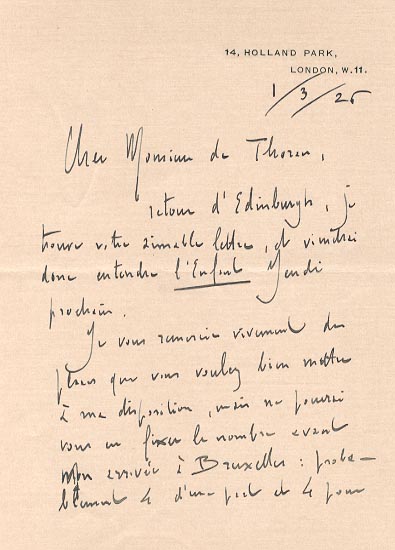 14, HOLLAND PARK,
LONDON, W.11.
1/3/25
Cher Monsieur de Thoran,
retour d'Edinburgh, je
trouve votre aimable lettre, et viendrai
donc entendre l'Enfant Jeudi
prochain.
Je vous remercie vivement des
places que vous voulez bien mettre
à ma disposition, mais ne pourrai
vous en fixer le nombre avant
mon arrivée à Bruxelles : proba-
blement 4 d'une part et 4 pour